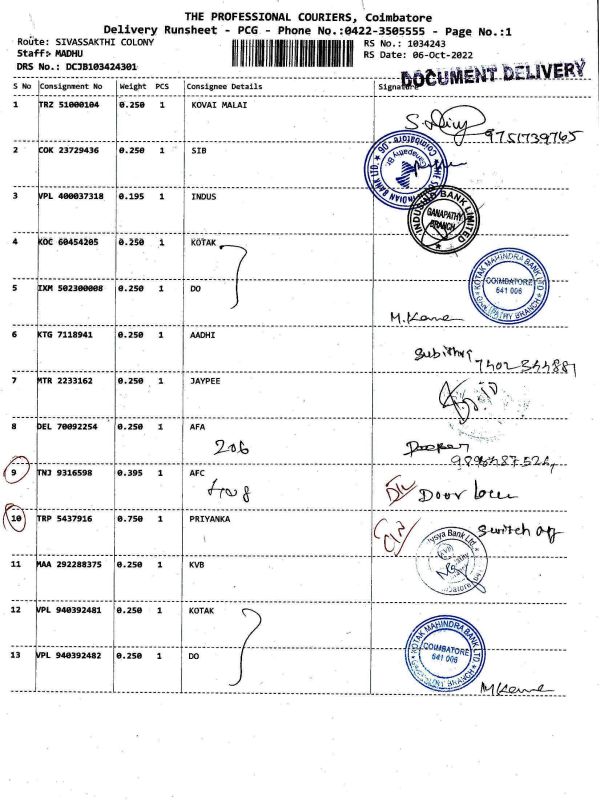 THE PROFESSIONAL COURIERS, Coimbatore
Delivery Runsheet - PCG - Phone No.:0422-3505555 - Page No.:1
Route: SIVASSAKTHI COLONY
Staff: MADHU
DRS No.: DCJB103424301
RS No.: 1034243
RS Date: 06-Oct-2022
DOCUMENT DELIVERY
S No Consignment No Weight PCS Consignee Details Signature
1 TRZ 51000104 0.250 1 KOVAI MALAI
9751739765
2 COK 23729436 0.250 1 SIB
3 VPL 400037318 0.195 1 INDUS
INDUSIND BANK LIMITED
GANAPATHY
BRANCH
4 KOC 60454205 0.250 1 KOTAK
KOTAK MAHINDRA BANK LTD
COIMBATORE
641 006
5 IXM 502300008 0.250 1 DO
6 KTG 7118941 0.250 1 AADHI
7402344881
7 MTR 2233162 0.250 1 JAYPEE
8 DEL 70092254 0.250 1 AFA
206
9 TNJ 9316598 0.395 1 AFC
Door
10 TRP 5437916 0.750 1 PRIYANKA
Switch off
11 MAA 292288375 0.250 1 KVB
12 VPL 940392481 0.250 1 KOTAK
KOTAK MAHINDRA BANK LTD
COIMBATORE
641 006
13 VPL 940392482 0.250 1 DO